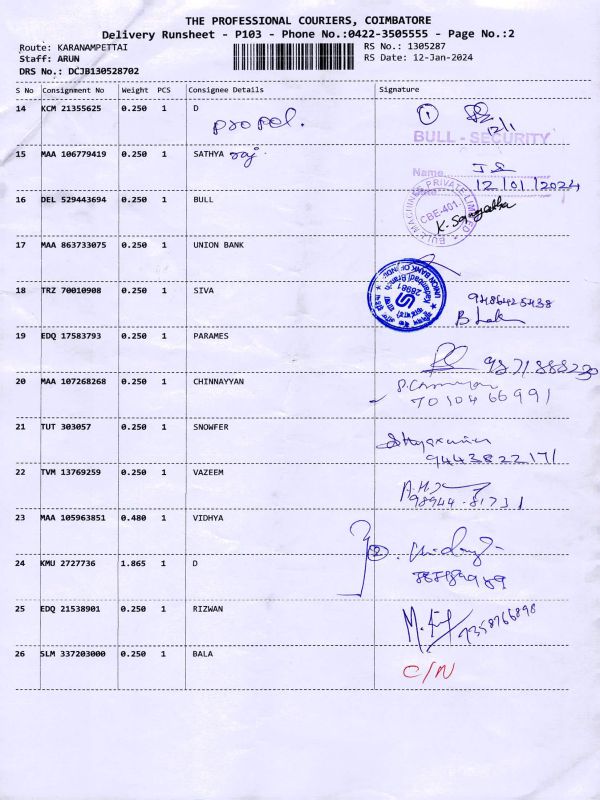 THE PROFESSIONAL COURIERS, COIMBATORE
Delivery Runsheet - P103 - Phone No.:0422-3505555 - Page No.:2
Route: KARANAMPETTAI RS No.: 1305287
Staff: ARUN RS Date: 12-Jan-2024
DRS No.: DCJB130528702
S No Consignment No Weight PCS Consignee Details Signature
14 KCM 21355625 0.250 1 D
propel. 1 12/1
BULL - SECURITY
15 MAA 106779419 0.250 1 SATHYA raj.
Name
12/01/2024
16 DEL 529443694 0.250 1 BULL
BULL MACHINES PRIVATE LIMITED CBE-401.
17 MAA 863733075 0.250 1 UNION BANK
UNION BANK OF INDIA
18 TRZ 70010908 0.250 1 SIVA
19 EDQ 17583793 0.250 1 PARAMES
9871888230
20 MAA 107268268 0.250 1 CHINNAYYAN
7010466991
21 TUT 303057 0.250 1 SNOWFER
9443822171
22 TVM 13769259 0.250 1 VAZEEM
98944-81731
23 MAA 105963851 0.480 1 VIDHYA
2
24 KMU 2727736 1.865 1 D
25 EDQ 21538901 0.250 1 RIZWAN
7358766898
26 SLM 337203000 0.250 1 BALA
C/N